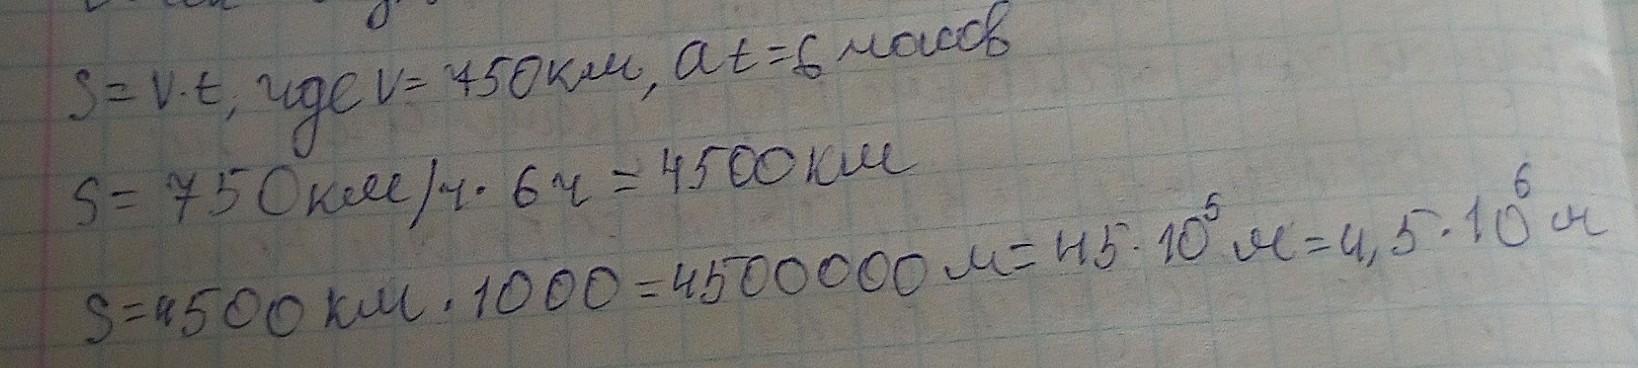 S = v·t, где v = 750 км, а t = 6 часов
S = 750 км/ч · 6 ч = 4500 км
S = 4500 км · 1000 = 4500000 м = 45 · 10⁵ м = 4,5 · 10⁶ м